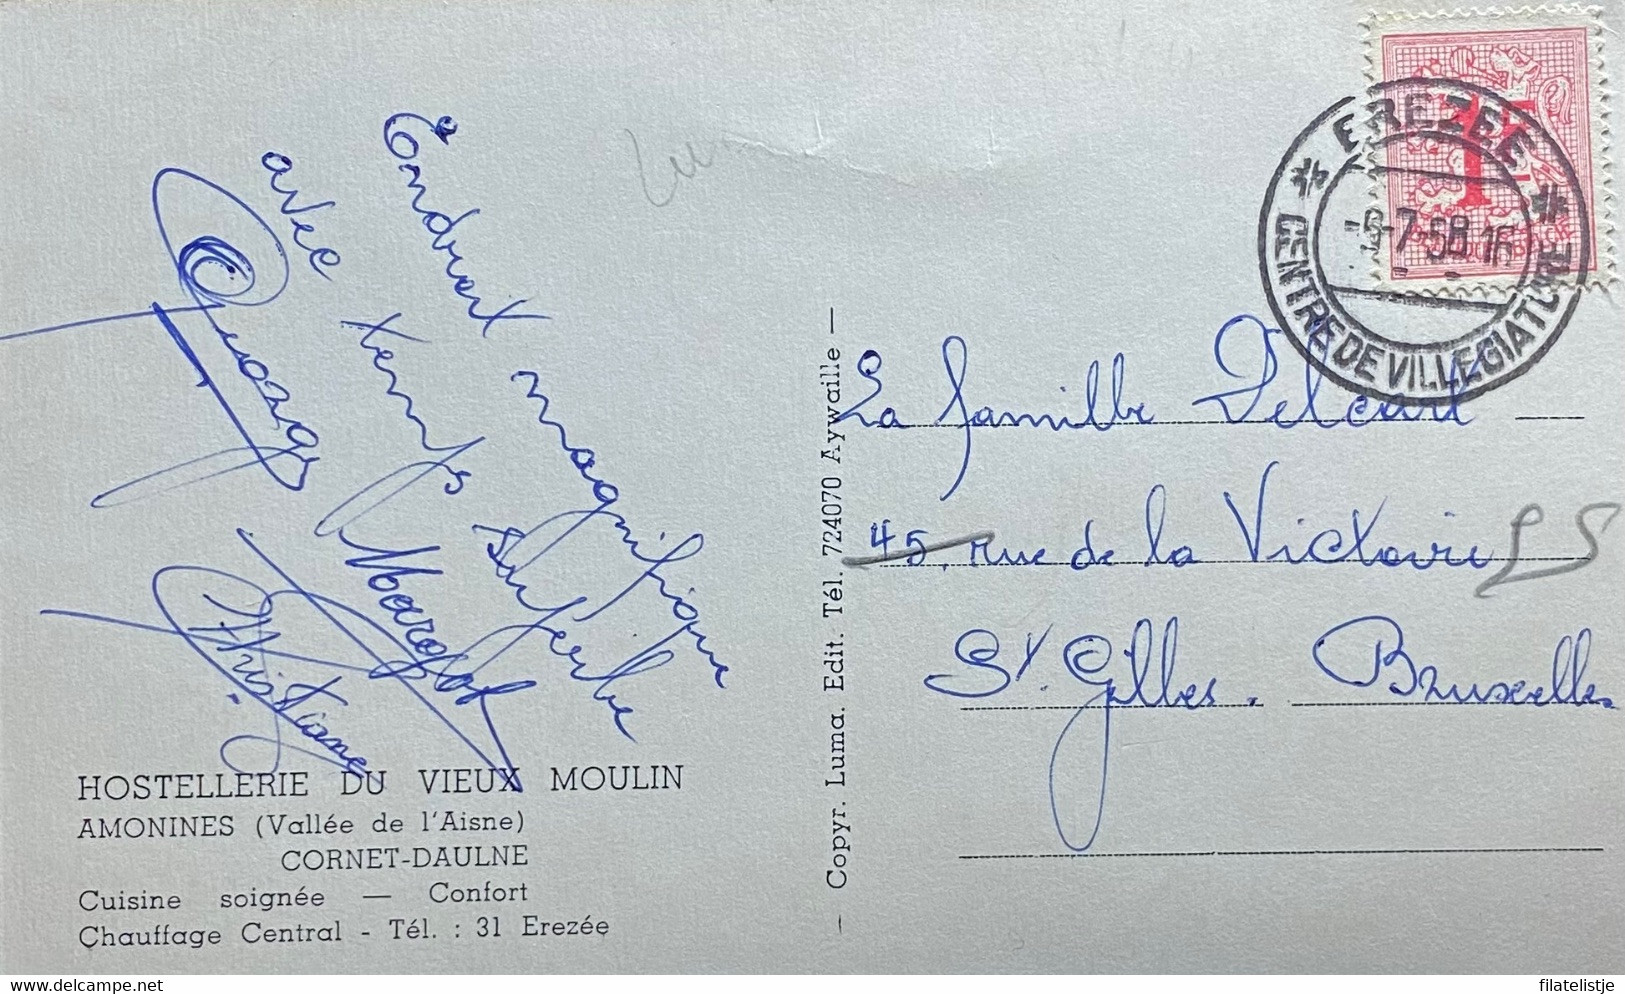 Endroit magnifique
avec temps superbe
Georges
Christiane
HOSTELLERIE DU VIEUX MOULIN
AMONINES (Vallée de l'Aisne)
CORNET-DAULNE
Cuisine soignée — Confort
Chauffage Central - Tél. : 31 Erezée
— Copyr. Luma. Edit. Tél. 724070 Aywaille —
EREZEE
-7-58 16
CENTRE DE VILLEGIATURE
1F
La famille Delcart
45, rue de la Victoire
St. Gilles. Bruxelles
© filatelistje